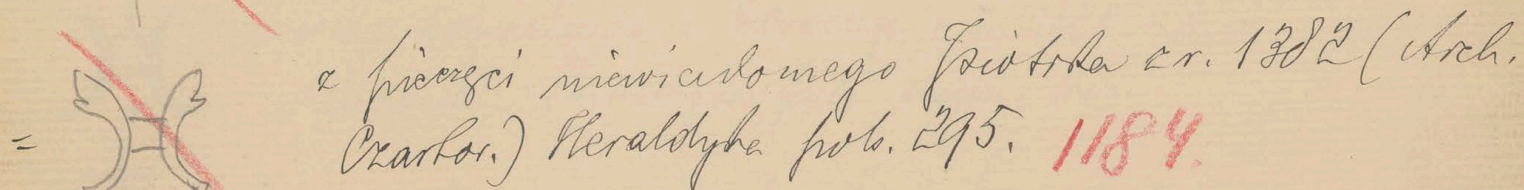 z pieczęci niewiadomego Piotrka z r. 1382 (Arch.
= Czartor.) Heraldyka pols. 295. 1184.